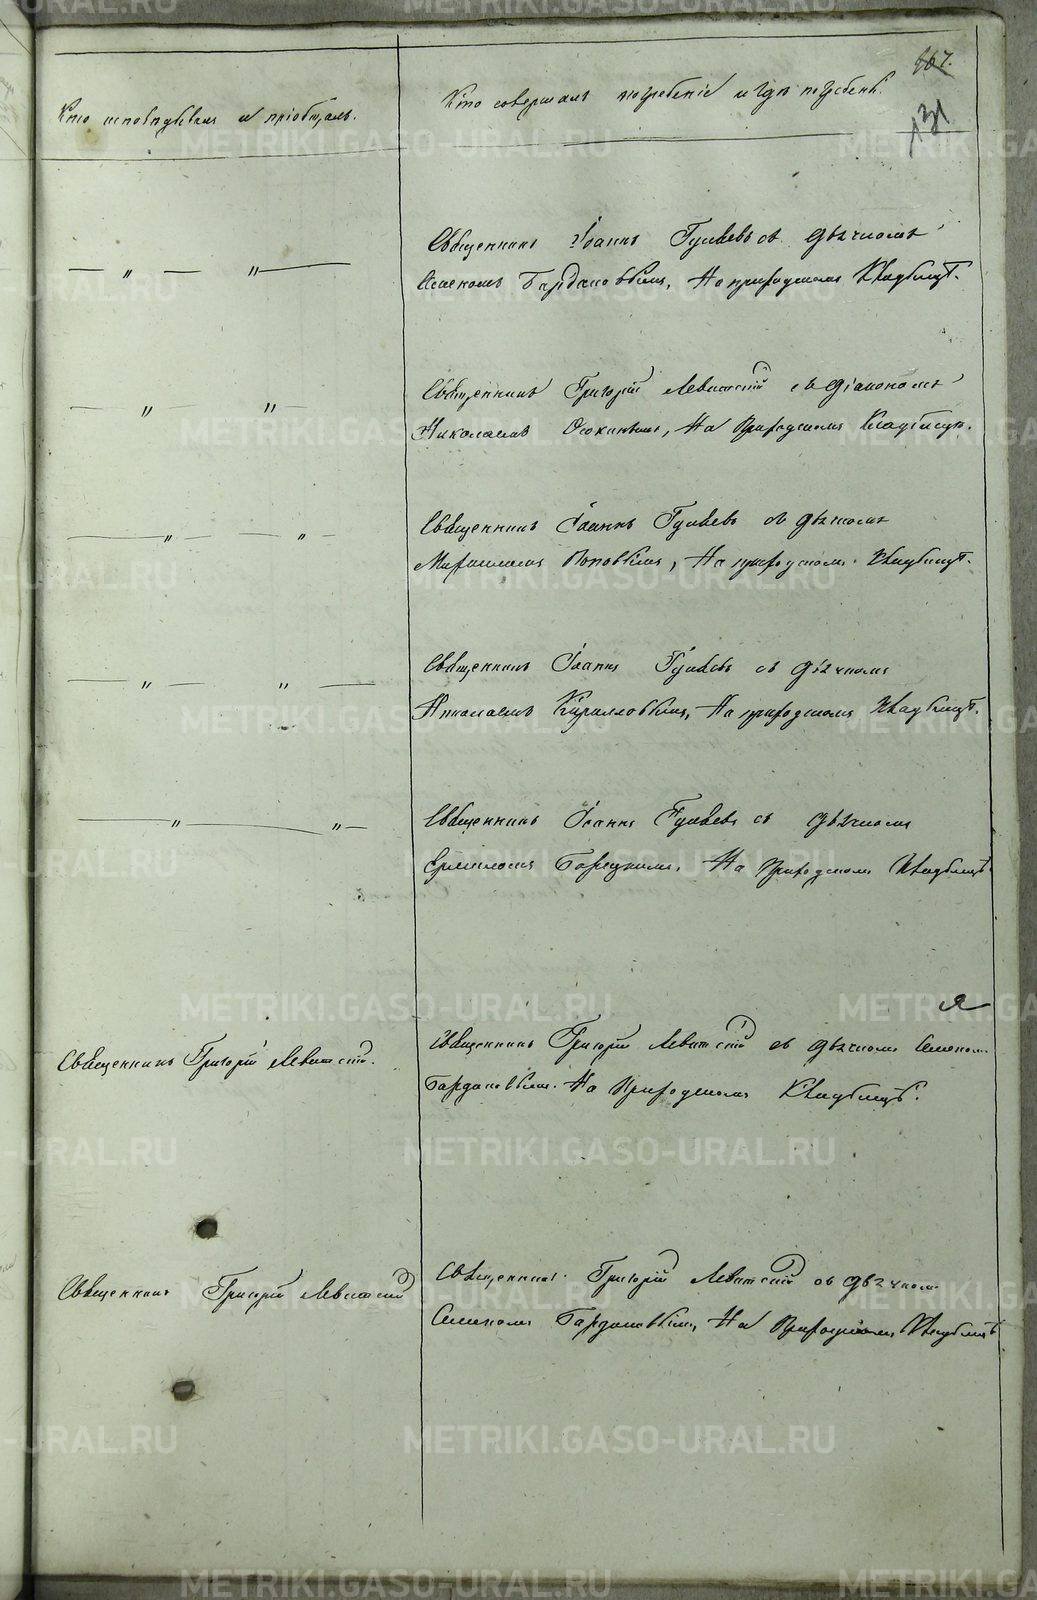 167.
131
Кто исповѣдывалъ и пріобщалъ.
Кто совершалъ погребеніе и гдѣ погребены.
— „ — „ —
Священникъ Іоаннъ Гуляевъ съ дьячкомъ
Семеномъ Бардаковымъ, На приходскомъ Кладбищѣ.
— „ — „ —
Священникъ Григорій Левитскій съ діакономъ
Николаемъ Осокинымъ, На Приходскомъ Кладбищѣ.
— „ — „ —
Священникъ Іоаннъ Гуляевъ съ дьячкомъ
Поповымъ, На приходскомъ Кладбищѣ.
— „ — „ —
Священникъ Іоаннъ Гуляевъ съ дьячкомъ
Николаемъ Кирилловымъ, На приходскомъ Кладбищѣ.
— „ — „ —
Священникъ Іоаннъ Гуляевъ съ дьячкомъ
На Приходскомъ Кладбищѣ
Священникъ Григорій Левитскій.
Священникъ Григорій Левитскій съ дьячкомъ Семеном
Бардаковымъ. На Приходскомъ Кладбищѣ.
Священникъ Григорій Левитскій
Священникъ Григорій Левитскій съ дьячкомъ
Семеномъ Бардаковымъ, На Приходскомъ Кладбищѣ
METRIKI.GASO-URAL.RU